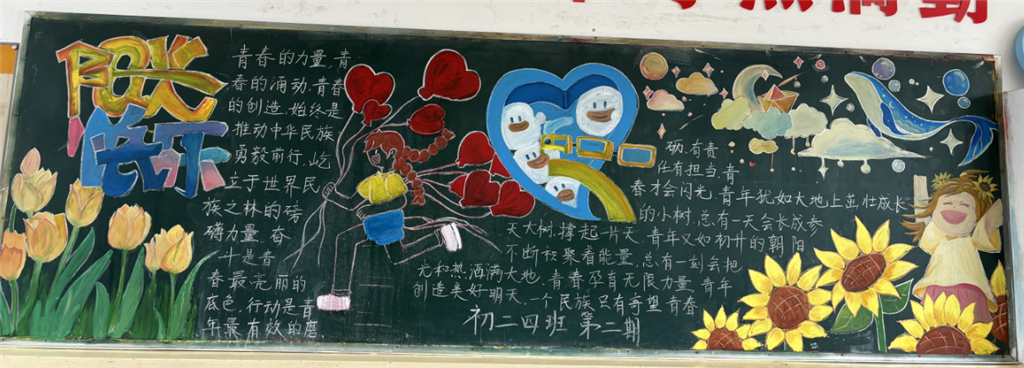 阳光
青春的力量、青
春的涌动、青春
的创造、始终是
推动中华民族
勇毅前行、屹
立于世界民
族之林的磅
礴力量、奋
斗是青
春最亮丽的
底色,行动是青
年最有效的磨
砺,有责
任有担当,青
春才会闪光,青年犹如大地上茁壮成长
的小树,总有一天会长成参
天大树,撑起一片天,青年又如初升的朝阳
不断积聚着能量,总有一刻会把
光和热洒满大地,青春孕有无限力量,青年
创造美好明天,一个民族只有寄望青春
初二四班 第二期